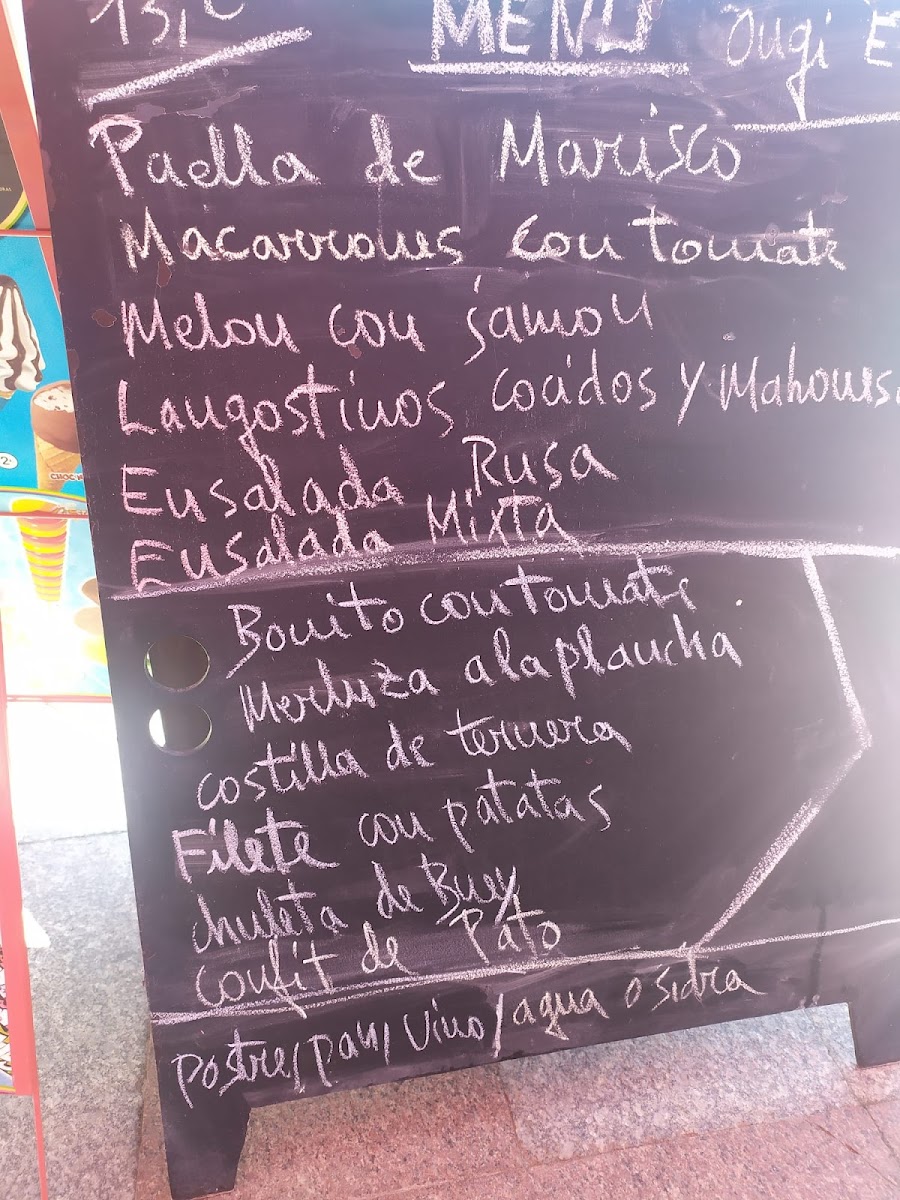 13,€ MENÚ Ongi E
Paella de Marisco
Macarrones con tomate
Melon con jamon
Langostinos cocidos y Mahones
Ensalada Rusa
Ensalada Mixta
Bonito con tomate
Merluza a la plancha
costilla de ternera
Filete con patatas
chuleta de Buey
Confit de Pato
Postre/pan/Vino/agua o sidra